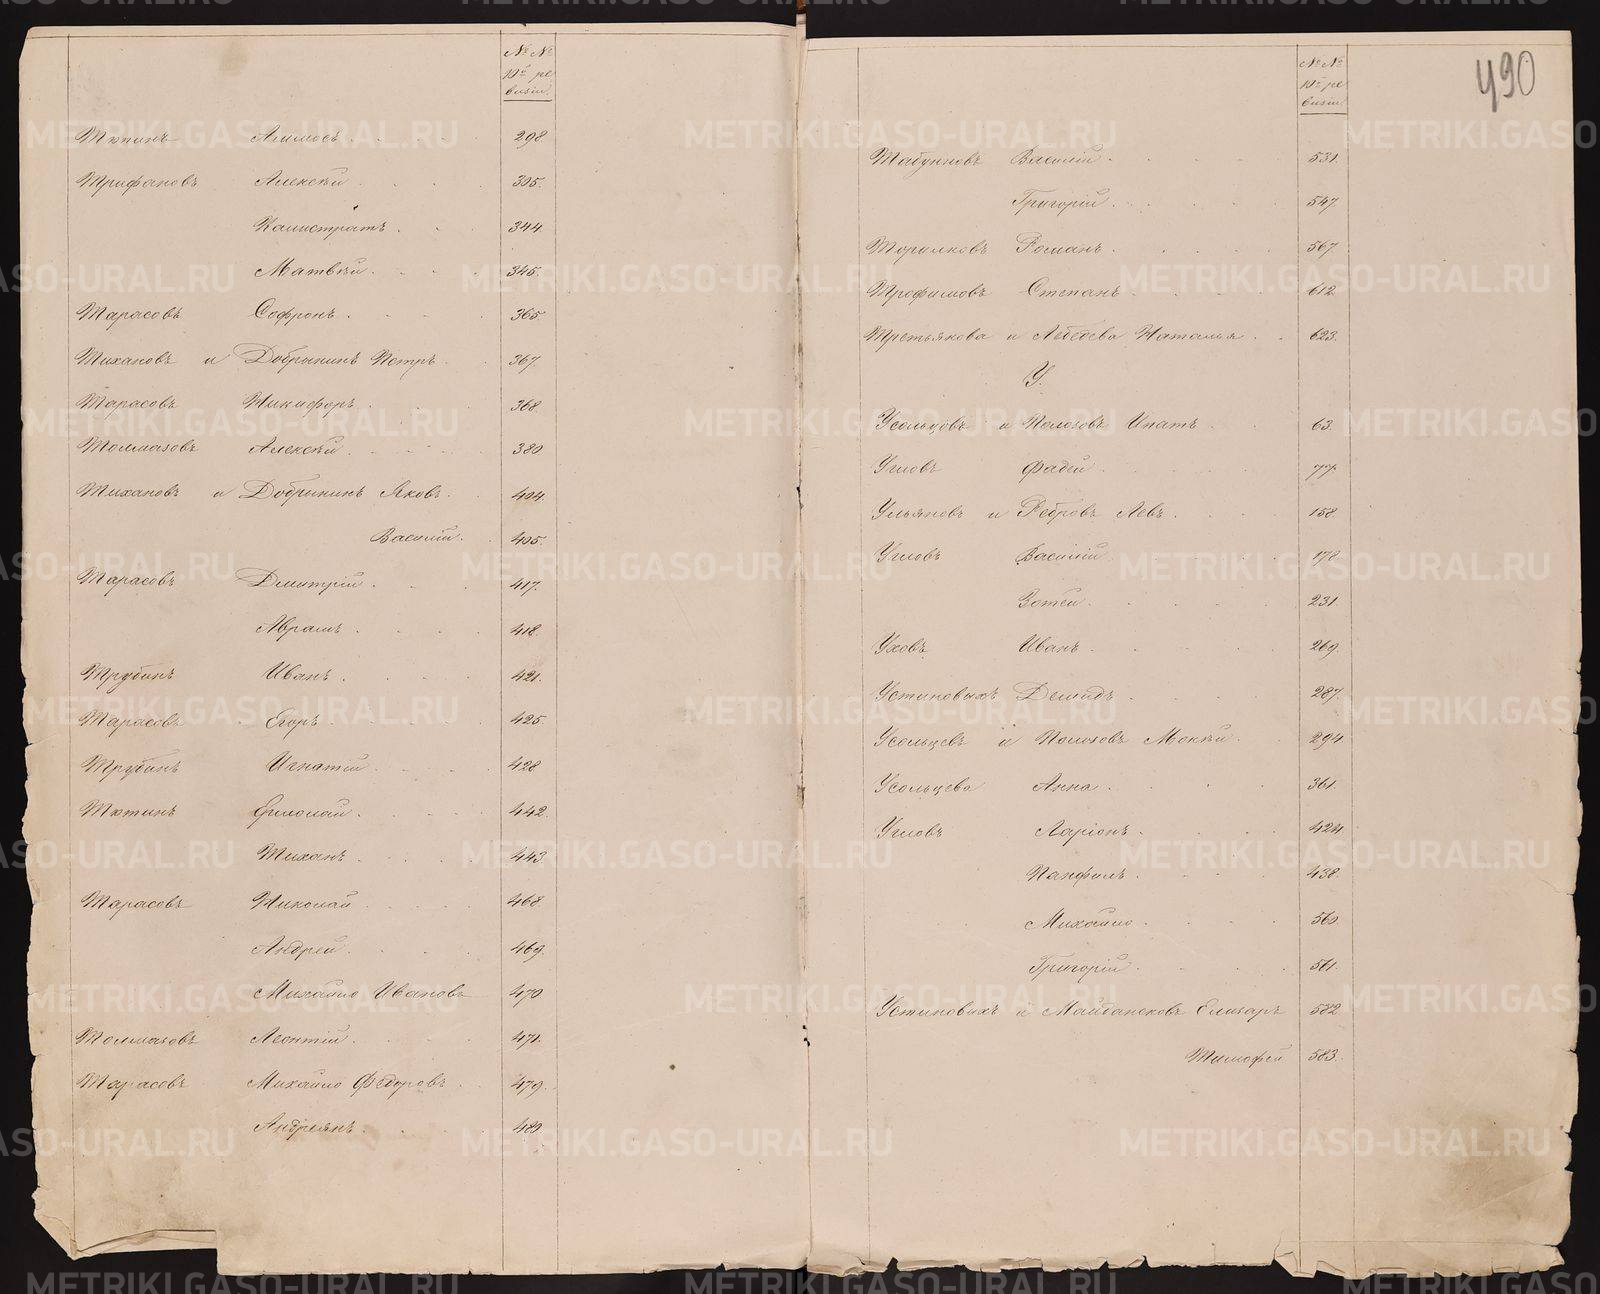 № №
10й ре
визiи.
Тютинъ Алимпъ 298.
Трифановъ Алексѣй 305.
Калистратъ 344
Матвѣй 345.
Тарасовъ Софронъ 365
Тихановъ и Добрынинъ Петръ 367.
Тарасовъ Никифоръ 368.
Толмазовъ Алексѣй 380
Тихановъ и Добрынинъ Яковъ 404.
Василiй 405.
Тарасовъ Дмитрiй 417.
Аврамъ 418.
Трубинъ Иванъ 421.
Тарасовъ Егоръ 425.
Трубинъ Игнатiй 428
Тютинъ Ермолай 442.
Тиханъ 443.
Тарасовъ Николай 468
Андрей 469.
Михайло Ивановъ 470
Толмазовъ Леонтiй 471.
Тарасовъ Михайло Федоровъ 479.
Андреянъ 480.
490
№ №
10й ре
визiи
Табунновъ Василiй 531.
Григорiй 547.
Торилковъ Романъ 567.
Трофимовъ Степанъ 612.
Третьякова и Лебедева Наталья 623.
У.
Усольцовъ и Полоховъ Ипатъ 63.
Угловъ Фадей 77.
Ульяновъ и Ребровъ Левъ 158
Угловъ Василiй 178
Зотей 231.
Уховъ Иванъ 269.
Устиновыхъ Демидъ 287.
Усольцевъ и Полоховъ Мокѣй 294.
Усольцева Анна 361.
Угловъ Ларiонъ 424.
Панфилъ 438.
Михайло 560.
Григорiй 561.
Устиновыхъ и Майдансковъ Елизаръ 582
Тимофей 583.
METRIKI.GASO-URAL.RU